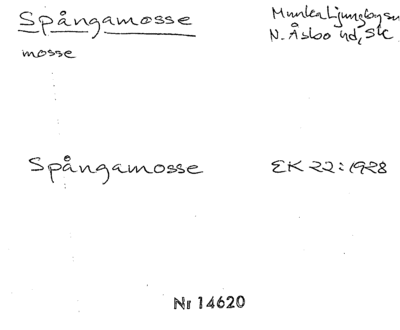 Spångamosse
Munka Ljungby sn
N. Åsbo hd, Sk
mosse
Spångamosse
EK 22:1928
Nr 14620